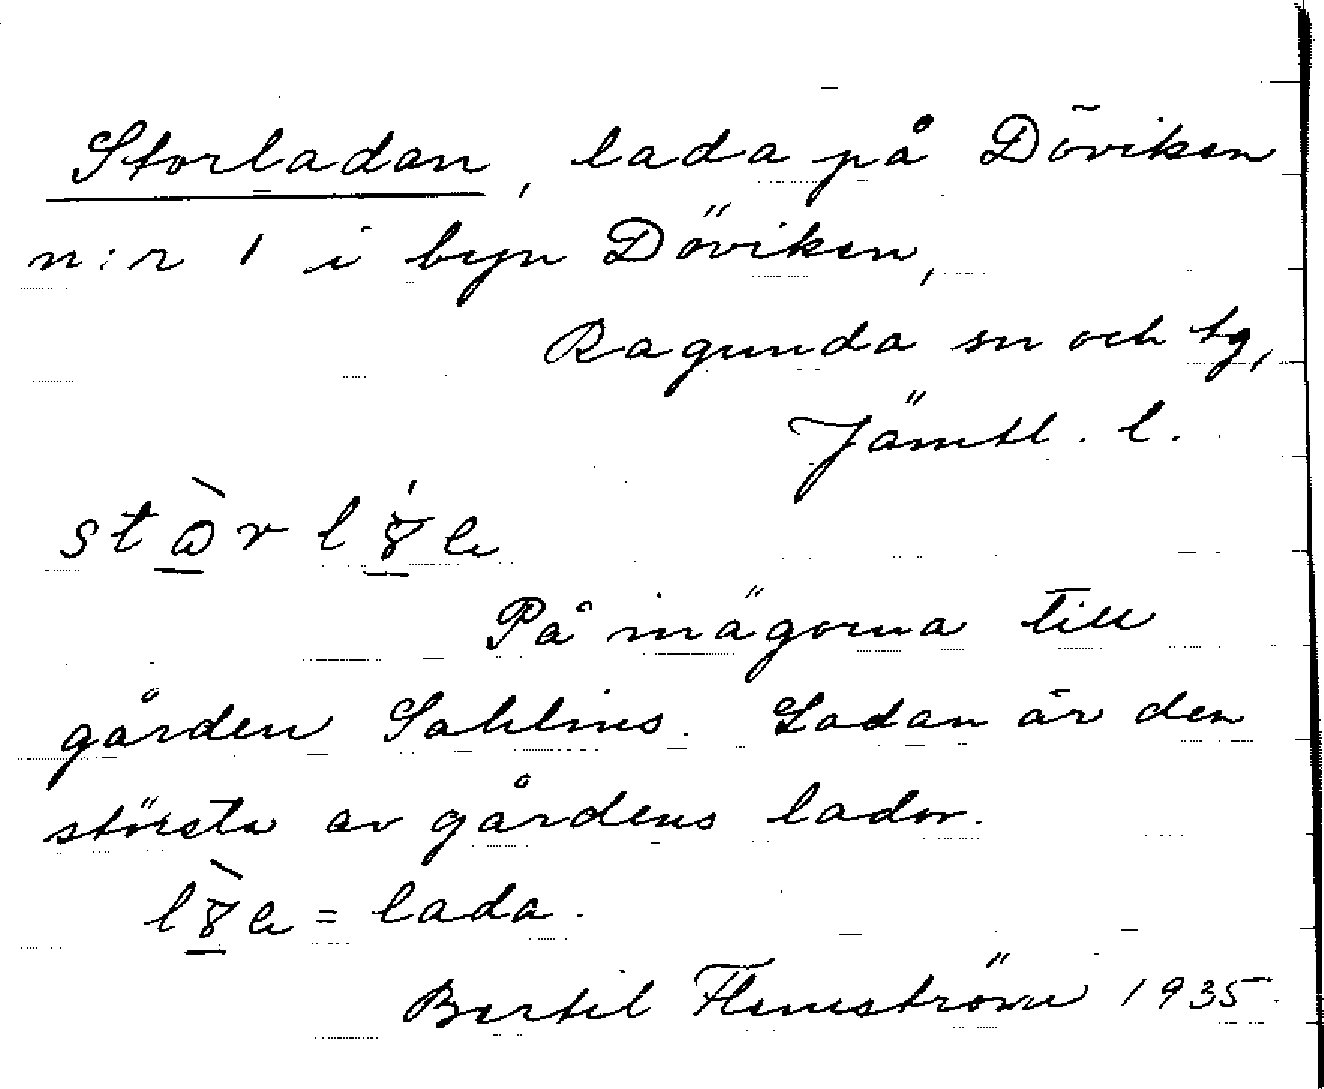 Storladan, lada på Döviken
n:r 1 i byn Döviken,
Ragunda sn och tg,
Jämtl. l.
På inägorna till
gården Sahlins. Ladan är den
största av gårdens lador.
= lada.
Bertil Flemström 1935